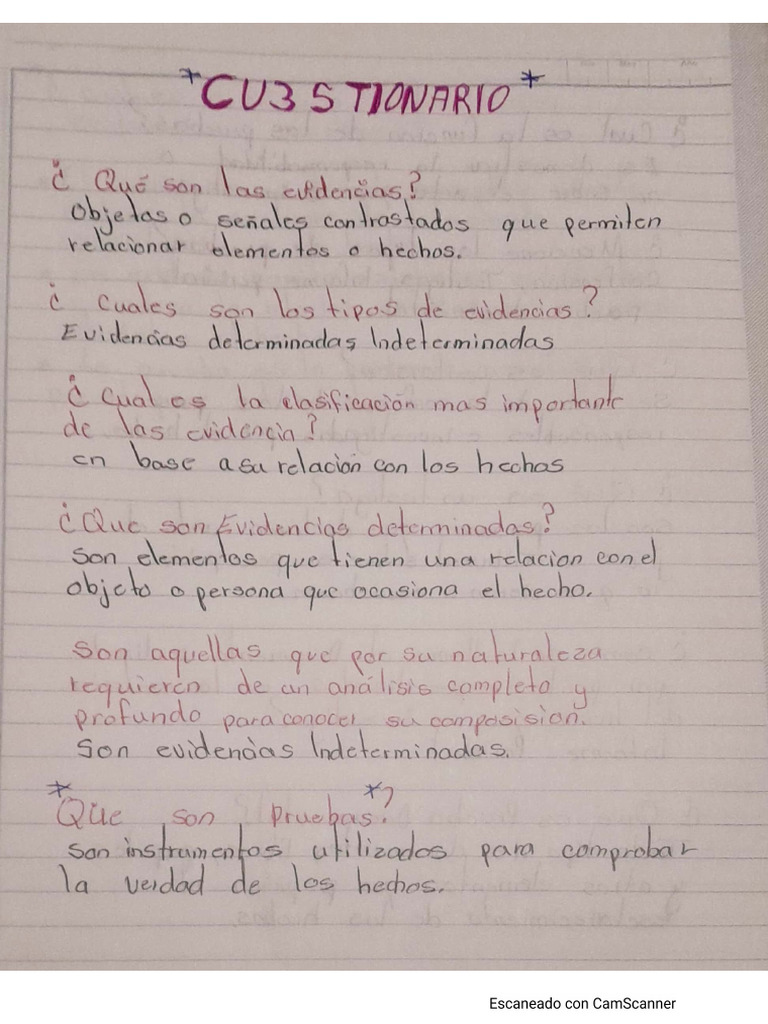 *CUESTIONARIO*
¿ Qué son las evidencias?
Objetas o señales contrastados que permiten
relacionar elementos o hechos.
¿ cuales son los tipos de evidencias?
Evidencias determinadas Indeterminadas
¿ Cual es la clasificación mas importante
de las evidencia?
en base a su relación con los hechos
¿Que son Evidencias determinadas?
Son elementos que tienen una relacion con el
objeto o persona que ocasiona el hecho.
Son aquellas que por su naturaleza
requieren de un análisis completo y
profundo para conocer su composision.
Son evidencias Indeterminadas.
*Que son pruebas*?
son instrumentos utilizados para comprobar
la verdad de los hechos.
Escaneado con CamScanner